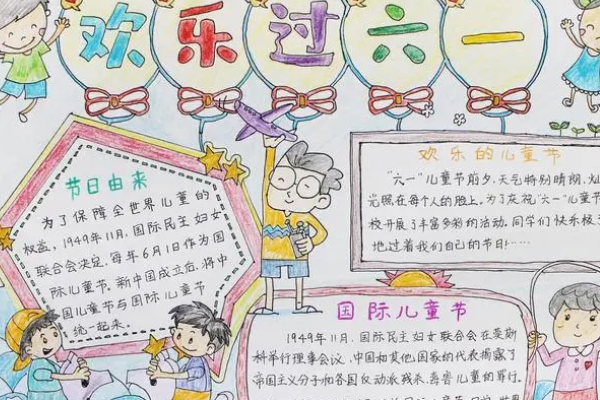 欢乐过六一
节日由来
为了保障全世界儿童的
权益。1949年11月,国际民主妇女
联合会决定,每年6月1日作为国
际儿童节。新中国成立后,将中
国儿童节与国际儿童节
统一起来。
欢乐的儿童节
“六一”儿童节前夕,天气特别晴朗,
光照在每个人的脸上,为了庆祝“六一”儿童节
校开展了丰富多彩的活动。同学们快乐极了
地过着我们自己的节日!……
国际儿童节
1949年11月,国际民主妇女联合会在莫斯
科举行理事会议,中国和其他国家的代表揭露了
帝国主义分子和各国反动派残杀、毒害儿童的罪行。